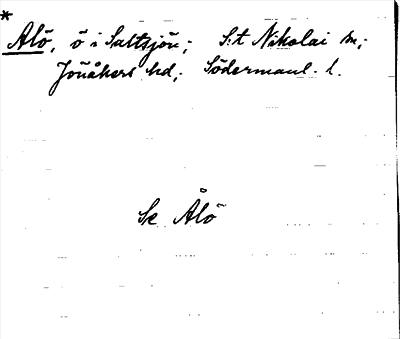 * Alö, ö i Saltsjön; S:t Nikolai sn;
Jönåkers hd; Södermanl. l.
Se Ålö